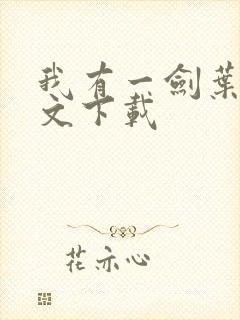 我有一劍葉
文下載
花亦心